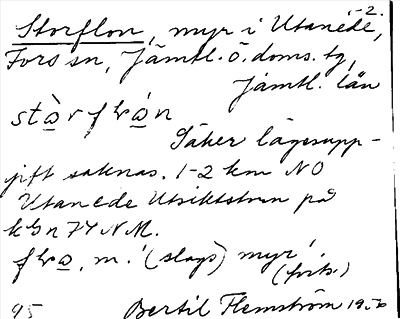 1-2.
Storflon, myr i Utanede,
Fors sn, Jämtl. ö. doms. tg,
Jämtl. län
Säker lägesupp-
gift saknas. 1-2 km NO
Utanede Utsiktstorn på
kbn 74 NM.
m. '(slags) myr'.
(forts.)
45 Bertil Flemström 1950